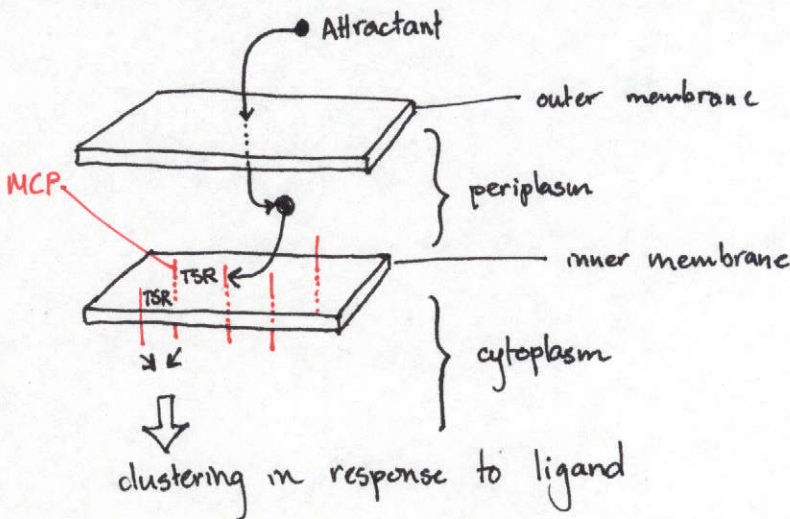 Attractant
outer membrane
periplasm
MCP
TSR
TSR
inner membrane
cytoplasm
clustering in response to ligand